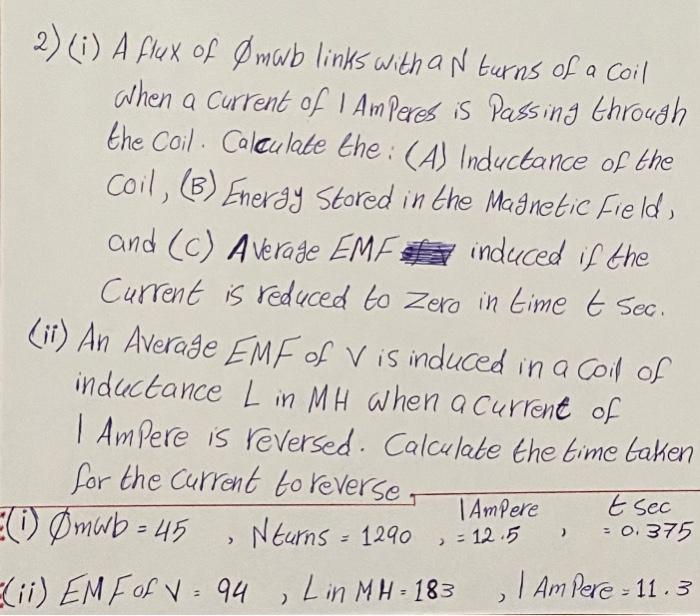 2) (i) A flux of Ømwb links with a N turns of a coil
when a current of I Amperes is Passing through
the coil. Calculate the: (A) Inductance of the
coil, (B) Energy Stored in the Magnetic Field,
and (C) Average EMF induced if the
Current is reduced to Zero in time t Sec.
(ii) An Average EMF of V is induced in a coil of
inductance L in MH when a current of
I Ampere is reversed. Calculate the time taken
for the current to reverse.
(i) Ømwb = 45 , N turns = 1290 , I Ampere = 12.5 , t sec = 0.375
(ii) EMF of V = 94 , L in MH = 183 , I Ampere = 11.3